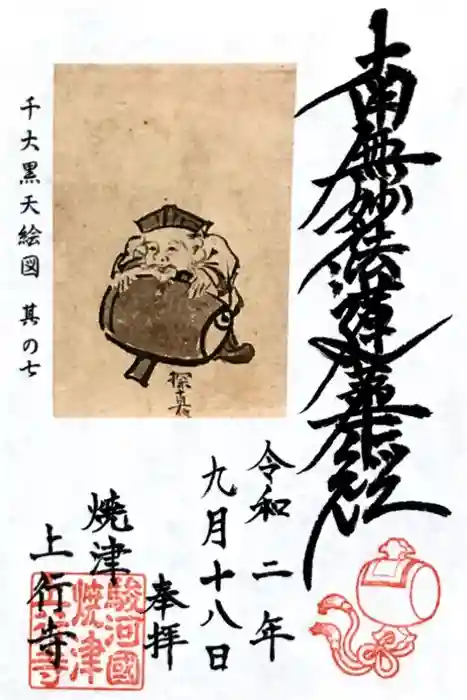 南無妙法蓮華経
千大黒天絵図 其の七
令和二年
九月十八日
奉拝
焼津
上行寺
駿河國
焼津
上行寺